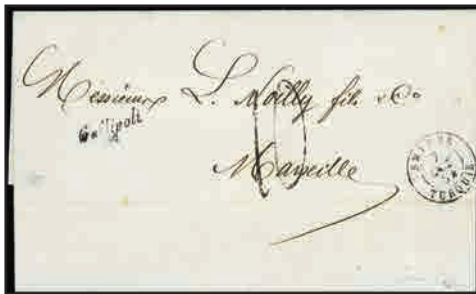 Messieurs L. Noilly fils & Co
Gallipoli
10
Marseille
SMYRNE
TURQUIE